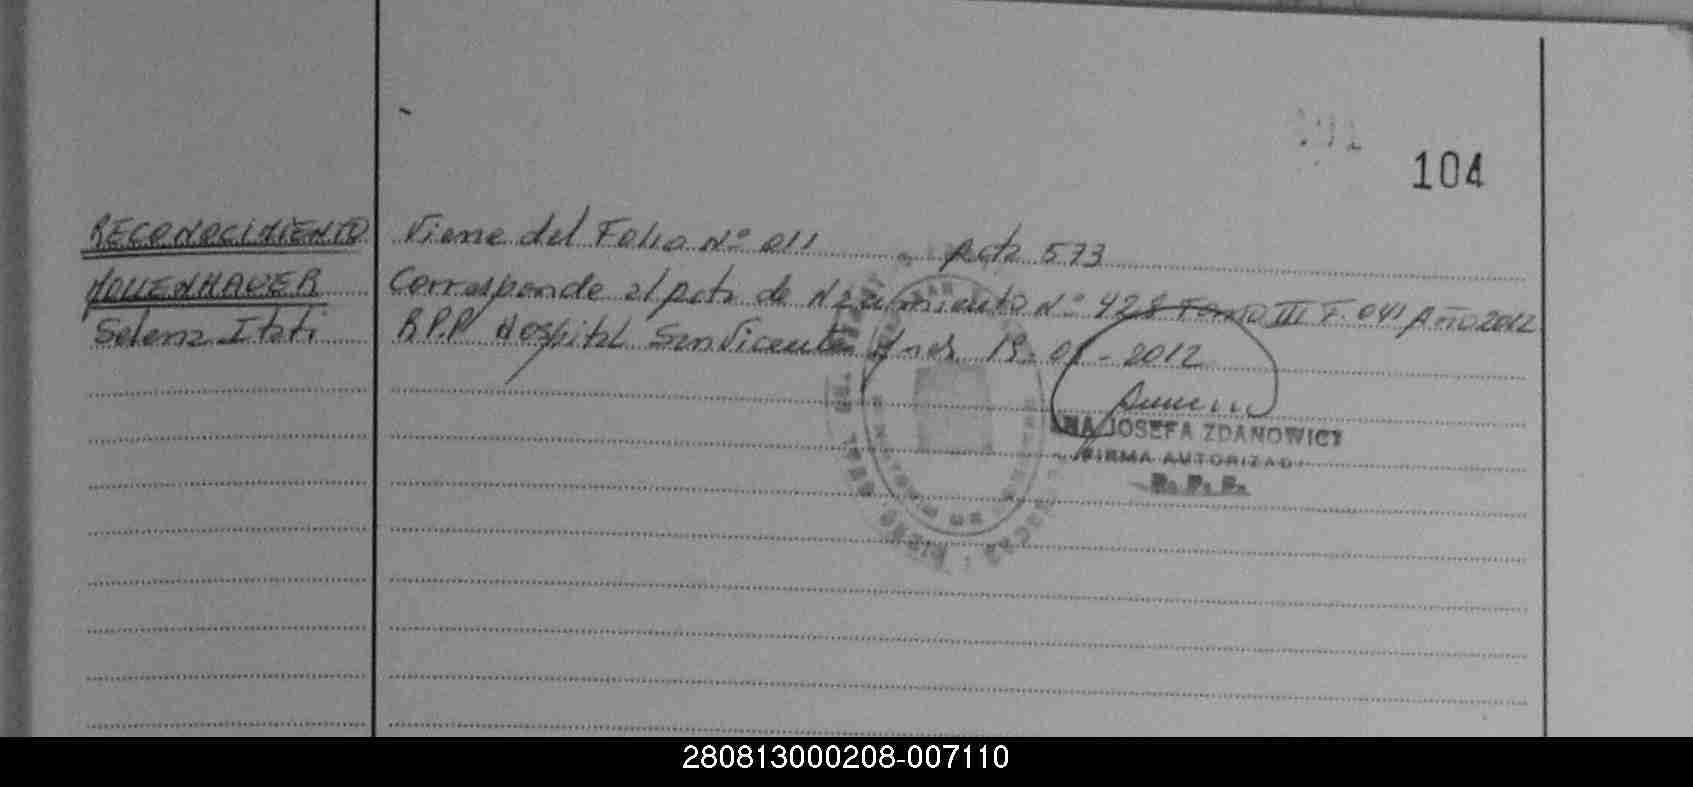 104
RECONOCIMIENTO Viene del Folio Nº 011 Acta 573
HOLLENHAUER Corresponde al Acta de Nacimiento Nº 428 Tomo III F. 041 Año 2012
Selena Itati R.P.P Hospital San Vicente 19-01-2012
ANA JOSEFA ZDANOWICZ
FIRMA AUTORIZADA
R. P. P.
280813000208-007110